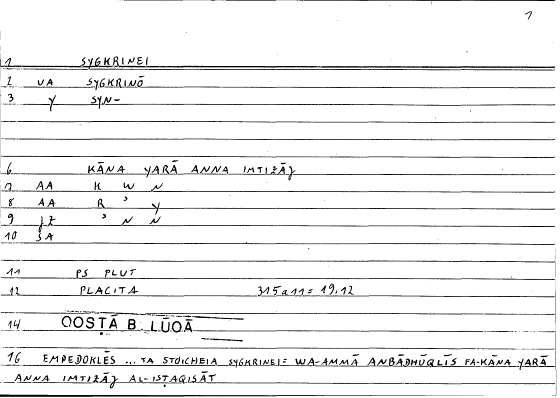 1
1 SYGKRINEI
2 VA SYGKRINŌ
3 Y SYN-
6 KĀNA YARĀ ANNA IMTIZĀǧ
7 AA K W N
8 AA R ʾ Y
9 ʾ N N
10
11 PS PLUT
12 PLACITA 315a11= 19,12
14 QOSṬĀ B. LŪQĀ
16 EMPEDOKLĒS ... TA STOICHEIA SYGKRINEI= WA-AMMĀ ANBĀDHŪQLĪS FA-KĀNA YARĀ
ANNA IMTIZĀǧ AL-ISṬAQISĀT